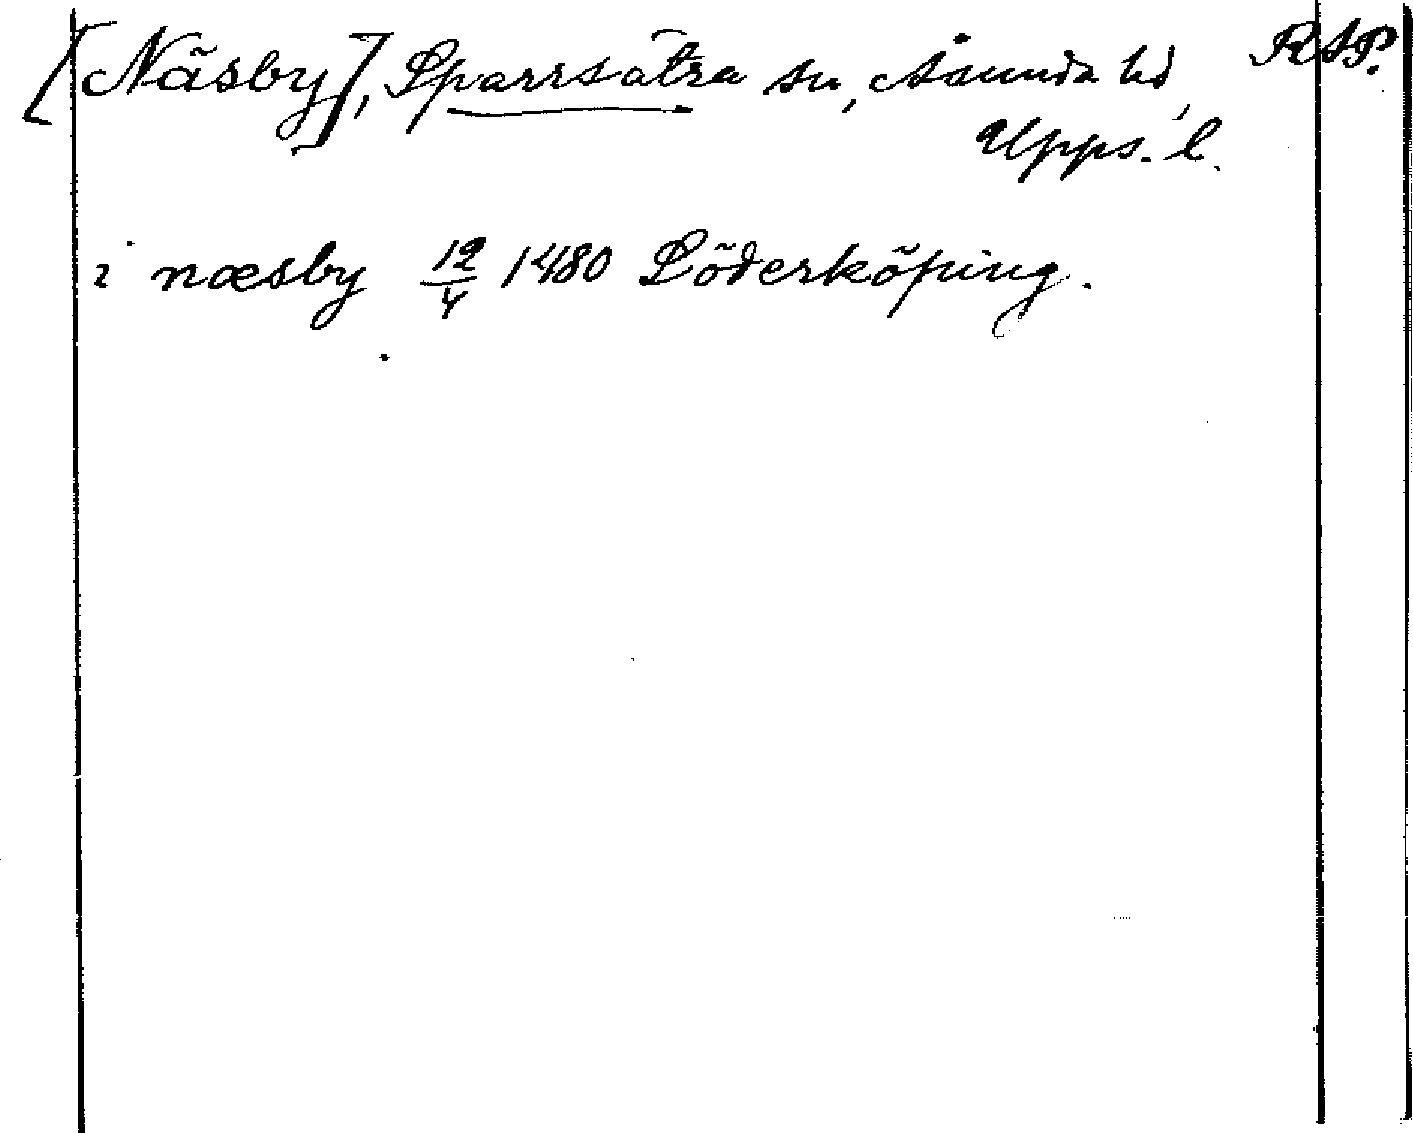 [Näsby], Sparrsätra sn, Åsunda hd, RAP.
Upps. l.
i næsby 12/4 1480 Söderköping.